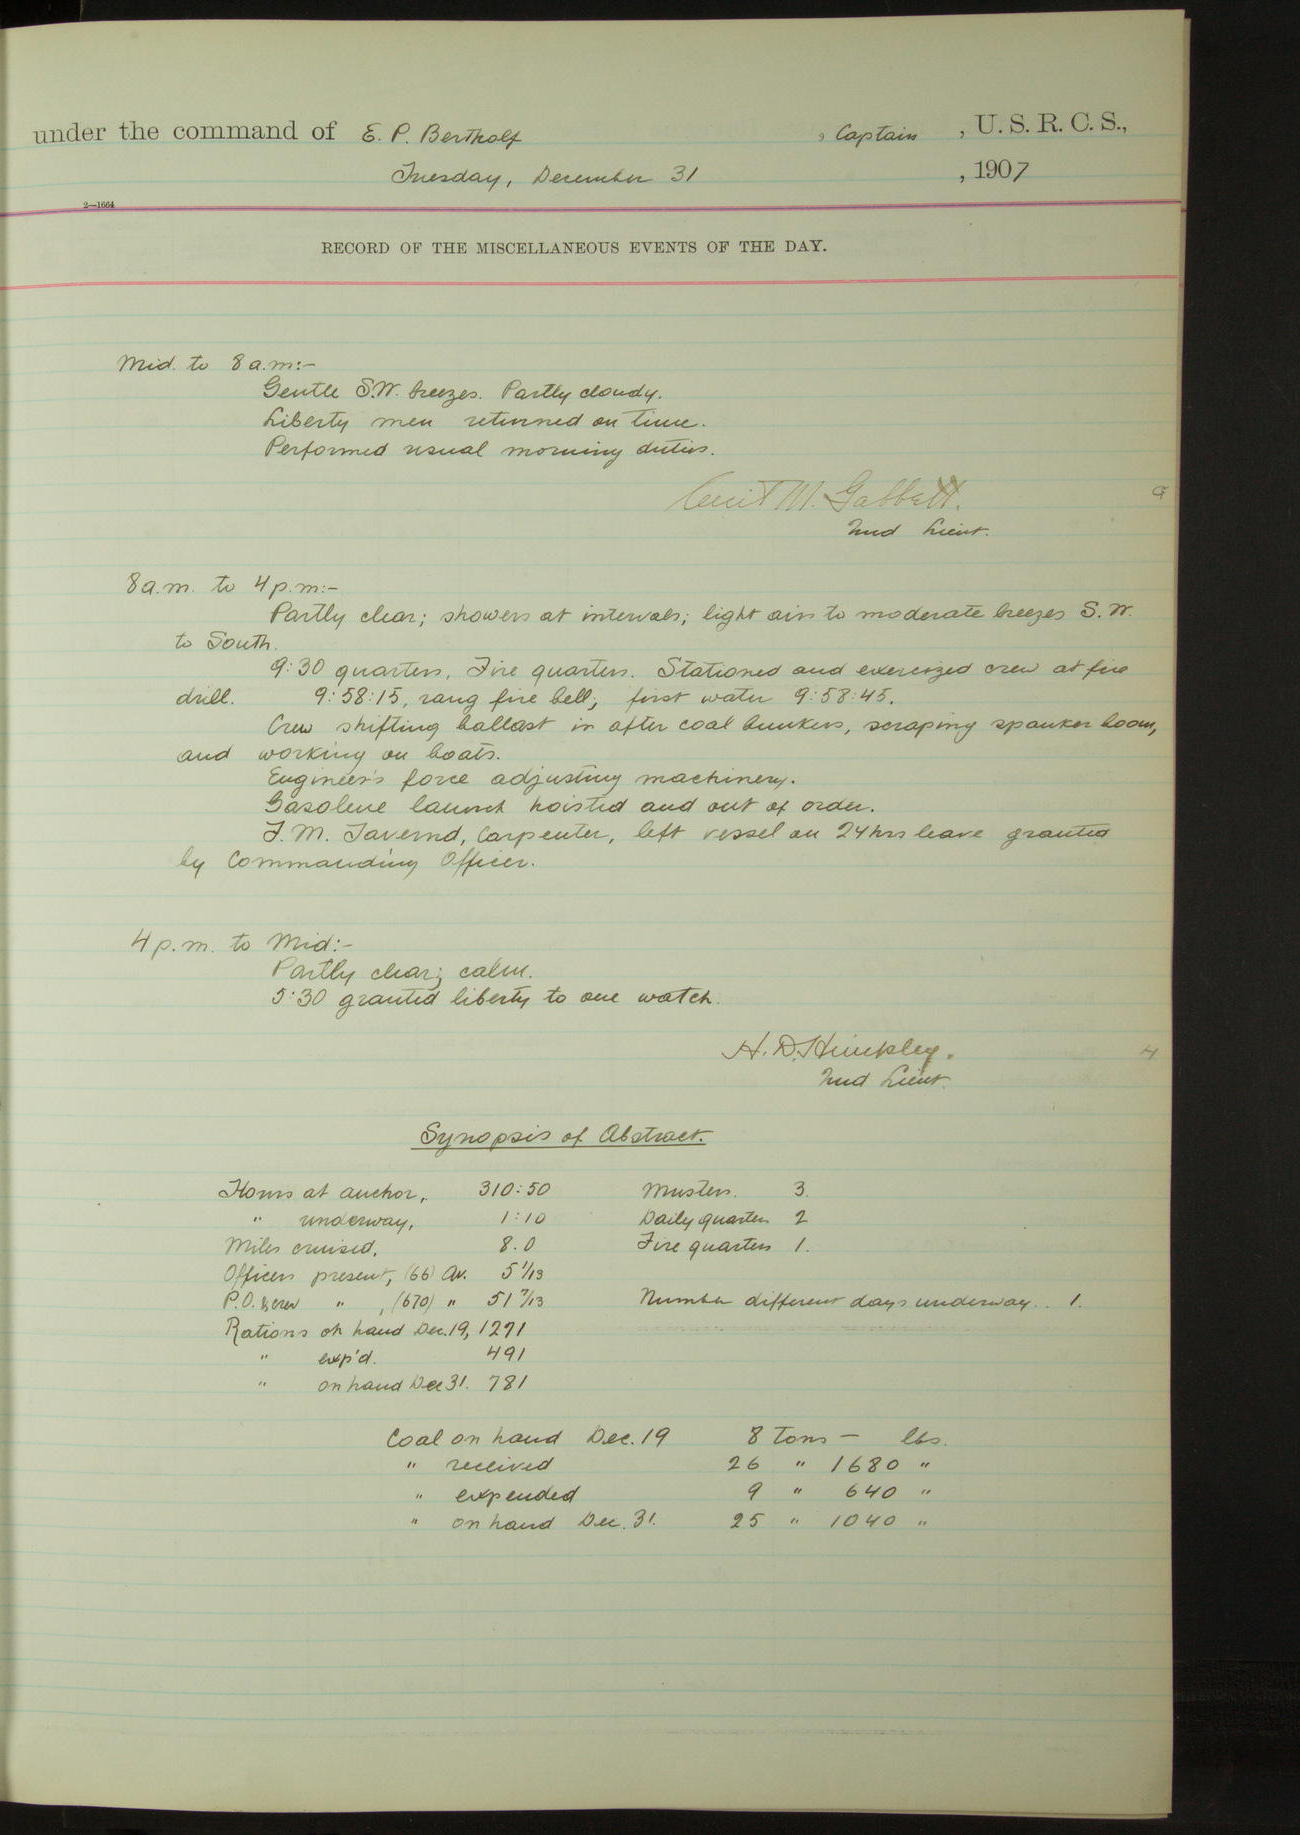 under the command of E. P. Bertholf, Captain, U. S. R. C. S.,
Tuesday, December 31, 1907
2—1664
RECORD OF THE MISCELLANEOUS EVENTS OF THE DAY.
Mid. to 8 a.m:-
Gentle S.W. breezes. Partly cloudy.
Liberty men returned on time.
Performed usual morning duties.
M. Gabbett.
G
2nd Lieut.
8 a.m. to 4 p.m:-
Partly clear; showers at intervals; light airs to moderate breezes S.W.
to South.
9:30 quarters, Fire quarters. Stationed and exercized crew at fire
drill. 9:58:15, rang fire bell; first water 9:58:45.
Crew shifting ballast in after coal bunkers, scraping spanker boom,
and working on boats.
Engineer's force adjusting machinery.
Gasolene launch hoisted and out of order.
F. M. Tavernd, Carpenter, left vessel on 24 hrs leave granted
by Commanding Officer.
4 p.m. to Mid:-
Partly clear; calm.
5:30 granted liberty to one watch.
H. D. Hinckley.
H
2nd Lieut.
Synopsis of Abstract.
Hours at anchor, 310:50 Musters. 3.
" underway, 1:10 Daily quarters 2
Miles cruised, 8.0 Fire quarters 1.
Officers present, (66) Av. 5 1/13
P.O. & crew " , (670) " 51 7/13 Number different days underway.. 1.
Rations on hand Dec. 19, 1271
" exp'd. 491
" on hand Dec 31. 781
Coal on hand Dec. 19 8 Tons — lbs.
" received 26 " 1680 "
" expended 9 " 640 "
" on hand Dec. 31. 25 " 1040 "